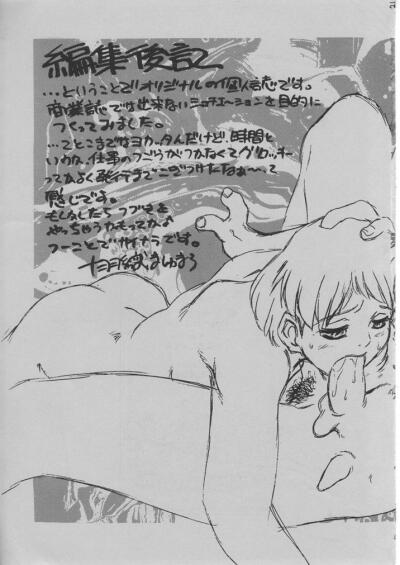 編集後記
…ということでオリジナルの個人誌です。
商業誌では出来ないシュチュエーションを目的に
つくってみました。
…てとこまではヨカッタんだけど、時間と
いうか、仕事のつごうがつかなくて
ってかよく発行までこぎつけたなぁ〜って
感じです。
もしかしたらつづきを
やっちゃうカモってカ
つーことでサイナラです。